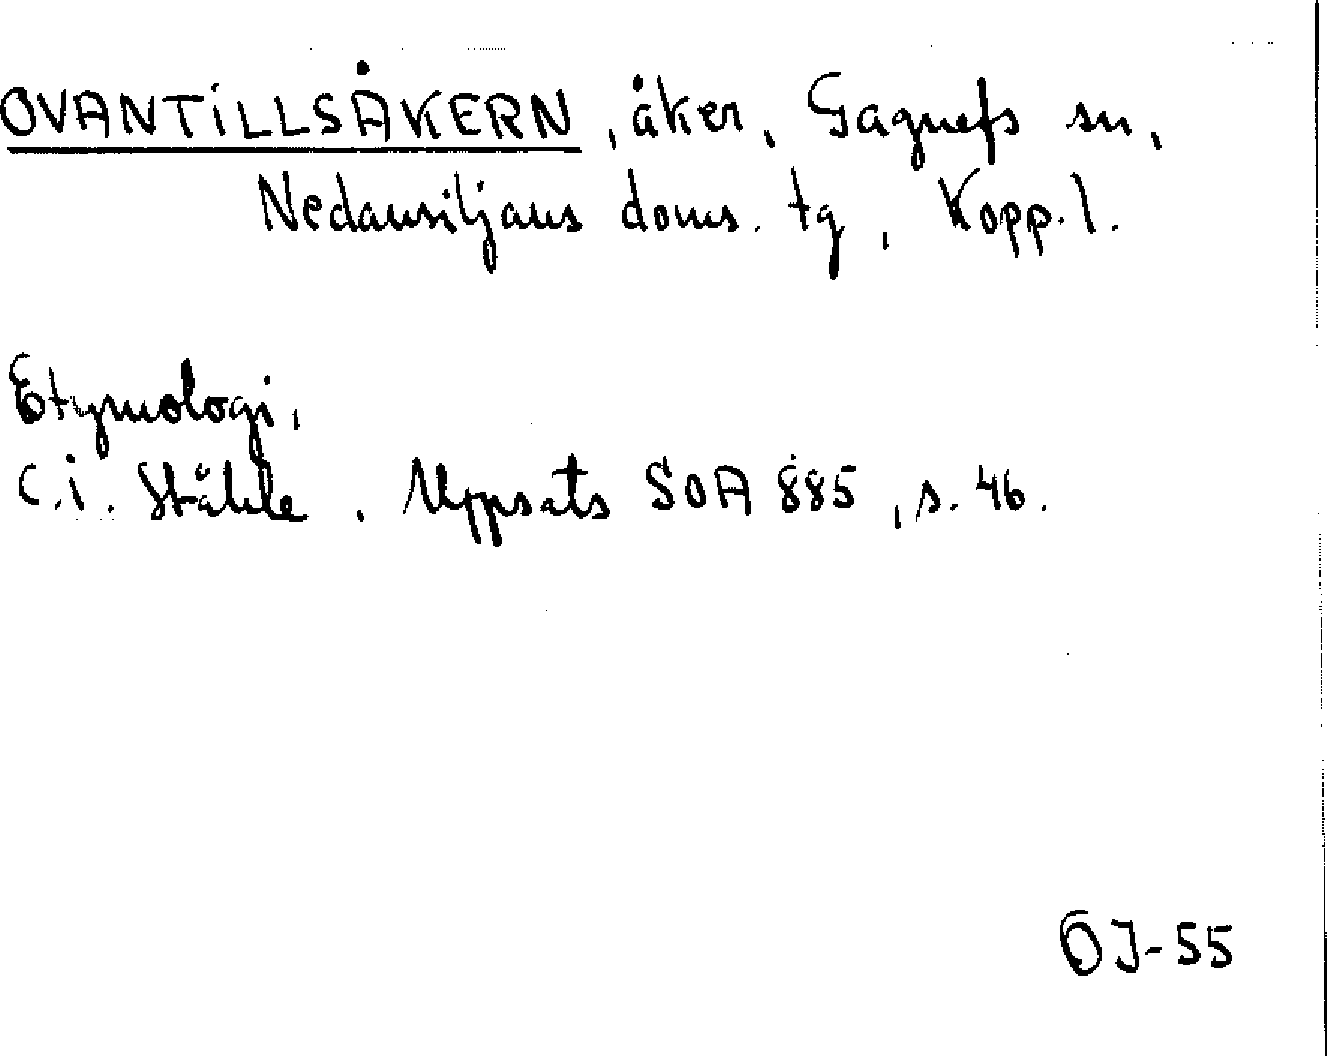 OVANTILLSÅKERN, åker, Gagnefs sn,
Nedansiljans doms. tg, Kopp. l.
Etymologi,
C.I. Ståhle. Uppsats SOA 885, s. 46.
ÖJ-55